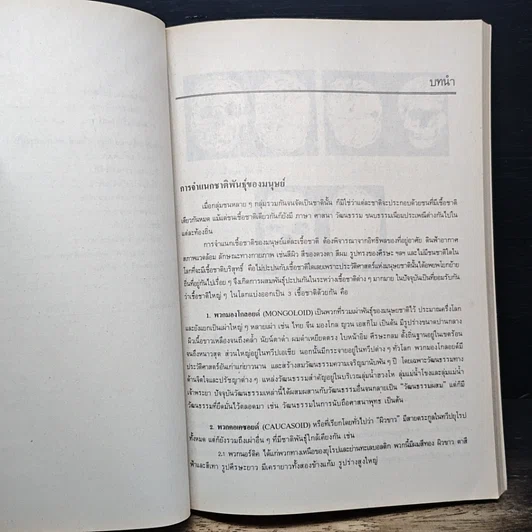 บทนำ
การจำแนกชาติพันธุ์ของมนุษย์
เมื่อกลุ่มชนหลาย ๆ กลุ่มรวมกันจนจัดเป็นชาตินั้น ก็มิใช่ว่าแต่ละชาติจะประกอบด้วยชนที่มีเชื้อชาติ
เดียวกันหมด แม้แต่ชนเชื้อชาติเดียวกันก็ยังมี ภาษา ศาสนา วัฒนธรรม ขนบธรรมเนียมประเพณีต่างกันไปใน
แต่ละท้องถิ่น
การจำแนกเชื้อชาติของมนุษย์แต่ละเชื้อชาติ ต้องพิจารณาจากอิทธิพลของที่อยู่อาศัย ดินฟ้าอากาศ
สภาพแวดล้อม ลักษณะทางกายภาพ เช่นสีผิว สีของดวงตา สีผม รูปทรงของศีรษะ ฯลฯ และไม่มีชนชาติใดใน
โลกที่จะมีเชื้อชาติบริสุทธิ์ คือไม่ปะปนกับเชื้อชาติใดเลยเพราะประวัติศาสตร์แห่งมนุษย์ชนนั้นได้อพยพโยกย้าย
ถิ่นที่อยู่กันไปเรื่อย ๆ จึงเกิดการผสมพันธุ์ปะปนกันในระหว่างเชื้อชาติต่าง ๆ มากมาย ในปัจจุบันเป็นที่ยอมรับกัน
ว่าเชื้อชาติใหญ่ ๆ ในโลกแบ่งออกเป็น 3 เชื้อชาติด้วยกัน คือ
1. พวกมองโกลอยด์ (MONGOLOID) เป็นพวกที่รวมเผ่าพันธุ์ของมนุษยชาติไว้ ประมาณครึ่งโลก
และยังแยกเป็นเผ่าใหญ่ ๆ หลายเผ่า เช่น ไทย จีน มองโกล ญวน เอสกิโม เป็นต้น มีรูปร่างขนาดปานกลาง
ผิวเนื้อขาวเหลืองจนถึงคล้ำ นัยน์ตาดำ ผมดำเหยียดตรง ใบหน้าอิ่ม ศีรษะกลม ตั้งถิ่นฐานอยู่ในเขตร้อน
จนถึงหนาวสุด ส่วนใหญ่อยู่ในทวีปเอเชีย นอกนั้นมีกระจายอยู่ในทวีปต่าง ๆ ทั่วโลก พวกมองโกลอยด์มี
ประวัติศาสตร์อันเก่าแก่ยาวนาน และสร้างสมวัฒนธรรมความเจริญมานับพัน ๆ ปี โดยเฉพาะวัฒนธรรมทาง
ด้านจิตใจและปรัชญาต่าง ๆ แหล่งวัฒนธรรมสำคัญอยู่ในบริเวณลุ่มน้ำฮวงโห ลุ่มแม่น้ำโขงและลุ่มแม่น้ำ
เจ้าพระยา ปัจจุบันวัฒนธรรมเหล่านี้ได้ผสมผสานกับวัฒนธรรมอื่นจนกลายเป็น "วัฒนธรรมผสม" แต่ก็มี
วัฒนธรรมที่ยึดมั่นไว้ตลอดมา เช่น วัฒนธรรมในการนับถือศาสนาพุทธ เป็นต้น
2. พวกคอเคซอยด์ (CAUCASOID) หรือที่เรียกโดยทั่วไปว่า "ผิวขาว" มีสายตระกูลในทวีปยุโรป
ทั้งหมด แต่ก็ยังรวมถึงเผ่าอื่น ๆ ที่มีชาติพันธุ์ใกล้เคียงกัน เช่น
2.1 พวกนอร์ดิค ได้แก่พวกทางเหนือของยุโรปและย่านทะเลบอลติก พวกนี้มีผมสีทอง ผิวขาว ตาสี
ฟ้าและสีเทา รูปศีรษะยาว มีเครายาวทั้งสองข้างแก้ม รูปร่างสูงใหญ่